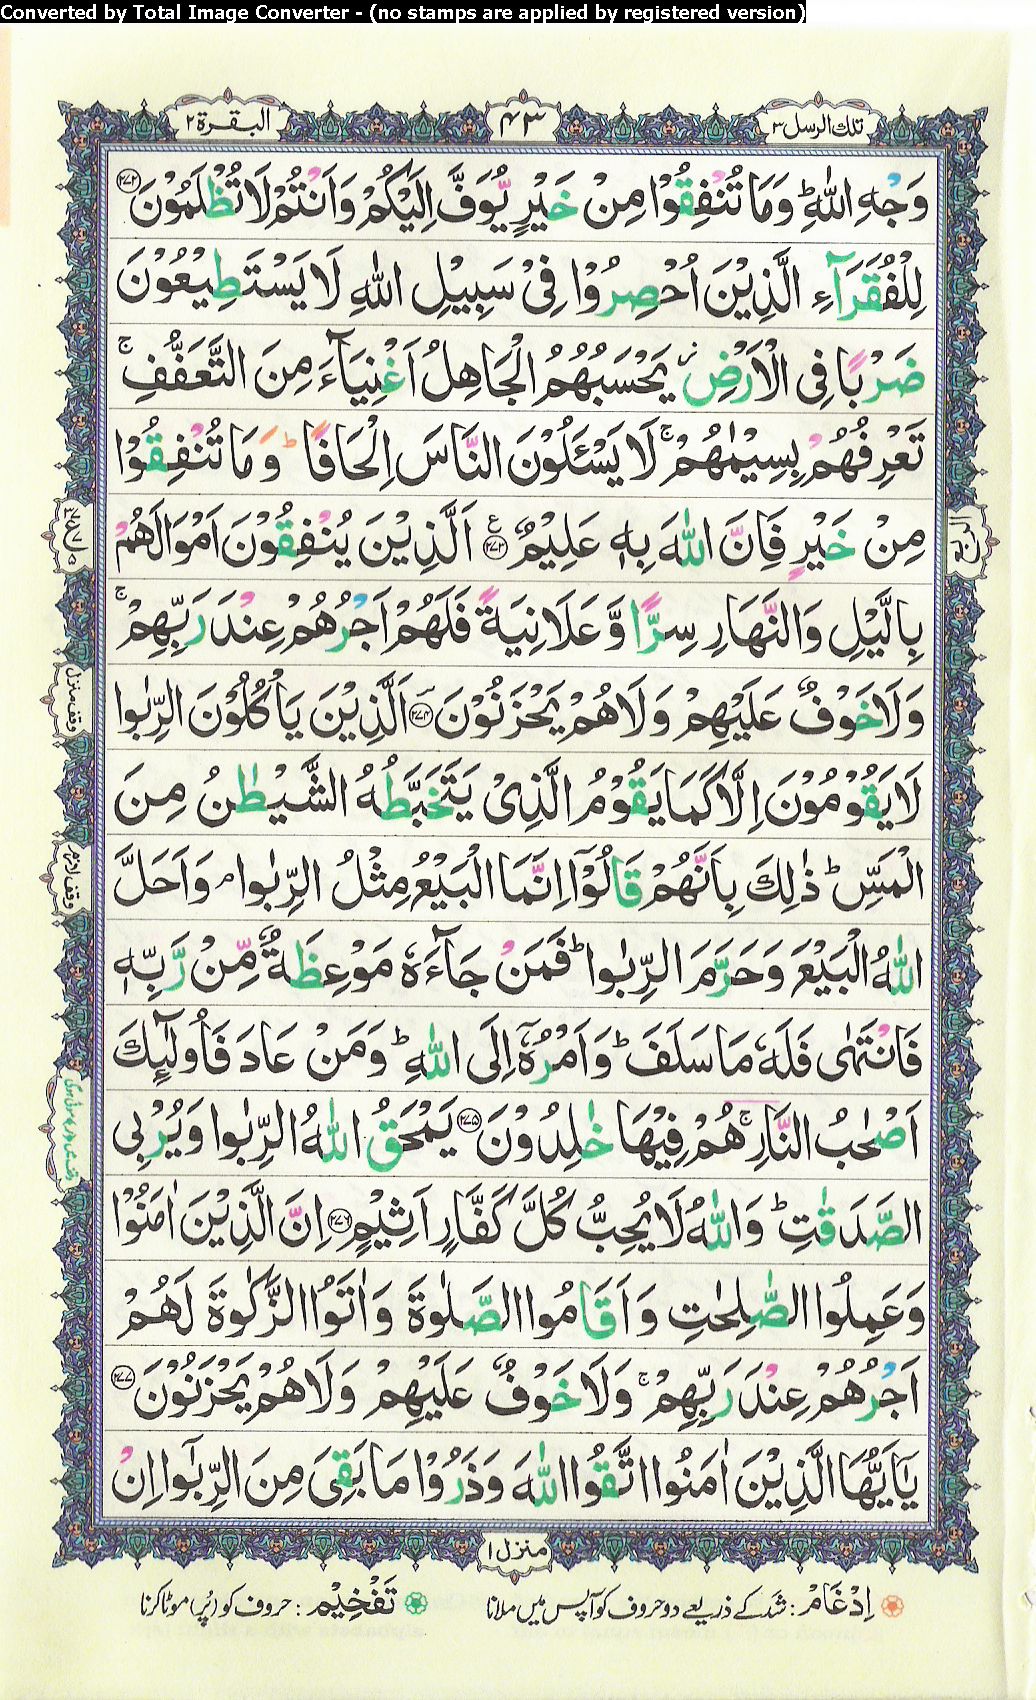 Converted by Total Image Converter - (no stamps are applied by registered version)
تلك الرسل ٣
٤٣
البقرة ٢
وَجْهِ اللّٰهِ ؕ وَمَا تُنْفِقُوْا مِنْ خَيْرٍ يُّوَفَّ اِلَيْكُمْ وَاَنْتُمْ لَا تُظْلَمُوْنَ ﴿۲۷۲﴾
لِلْفُقَرَآءِ الَّذِيْنَ اُحْصِرُوْا فِيْ سَبِيْلِ اللّٰهِ لَا يَسْتَطِيْعُوْنَ
ضَرْبًا فِى الْاَرْضِ ز يَحْسَبُهُمُ الْجَاهِلُ اَغْنِيَآءَ مِنَ التَّعَفُّفِ ۚ
تَعْرِفُهُمْ بِسِيْمٰهُمْ ۚ لَا يَسْـَٔلُوْنَ النَّاسَ اِلْحَافًا ؕ وَمَا تُنْفِقُوْا
مِنْ خَيْرٍ فَاِنَّ اللّٰهَ بِهٖ عَلِيْمٌ ﴿۲۷۳﴾ ع اَلَّذِيْنَ يُنْفِقُوْنَ اَمْوَالَهُمْ
بِالَّيْلِ وَالنَّهَارِ سِرًّا وَّعَلَانِيَةً فَلَهُمْ اَجْرُهُمْ عِنْدَ رَبِّهِمْ ۚ
وَلَا خَوْفٌ عَلَيْهِمْ وَلَا هُمْ يَحْزَنُوْنَ ﴿۲۷۴﴾ اَلَّذِيْنَ يَاْكُلُوْنَ الرِّبٰوا
لَا يَقُوْمُوْنَ اِلَّا كَمَا يَقُوْمُ الَّذِىْ يَتَخَبَّطُهُ الشَّيْطٰنُ مِنَ
الْمَسِّ ؕ ذٰلِكَ بِاَنَّهُمْ قَالُوْٓا اِنَّمَا الْبَيْعُ مِثْلُ الرِّبٰوا ۘ وَاَحَلَّ
اللّٰهُ الْبَيْعَ وَحَرَّمَ الرِّبٰوا ؕ فَمَنْ جَآءَهٗ مَوْعِظَةٌ مِّنْ رَّبِّهٖ
فَانْتَهٰى فَلَهٗ مَا سَلَفَ ؕ وَاَمْرُهٗٓ اِلَى اللّٰهِ ؕ وَمَنْ عَادَ فَاُولٰٓئِكَ
اَصْحٰبُ النَّارِ ۚ هُمْ فِيْهَا خٰلِدُوْنَ ﴿۲۷۵﴾ يَمْحَقُ اللّٰهُ الرِّبٰوا وَيُرْبِى
الصَّدَقٰتِ ؕ وَاللّٰهُ لَا يُحِبُّ كُلَّ كَفَّارٍ اَثِيْمٍ ﴿۲۷۶﴾ اِنَّ الَّذِيْنَ اٰمَنُوْا
وَعَمِلُوا الصّٰلِحٰتِ وَاَقَامُوا الصَّلٰوةَ وَاٰتَوُا الزَّكٰوةَ لَهُمْ
اَجْرُهُمْ عِنْدَ رَبِّهِمْ ۚ وَلَا خَوْفٌ عَلَيْهِمْ وَلَا هُمْ يَحْزَنُوْنَ ﴿۲۷۷﴾
يٰٓاَيُّهَا الَّذِيْنَ اٰمَنُوا اتَّقُوا اللّٰهَ وَذَرُوْا مَا بَقِىَ مِنَ الرِّبٰٓوا اِنْ
وقف منزل
وقف لازم
منزل ١
اِدْغَامْ : شد کے ذریعے دو حروف کو آپس میں ملانا
تَفْخِيْمْ : حروف کو (پُر) موٹا کرنا